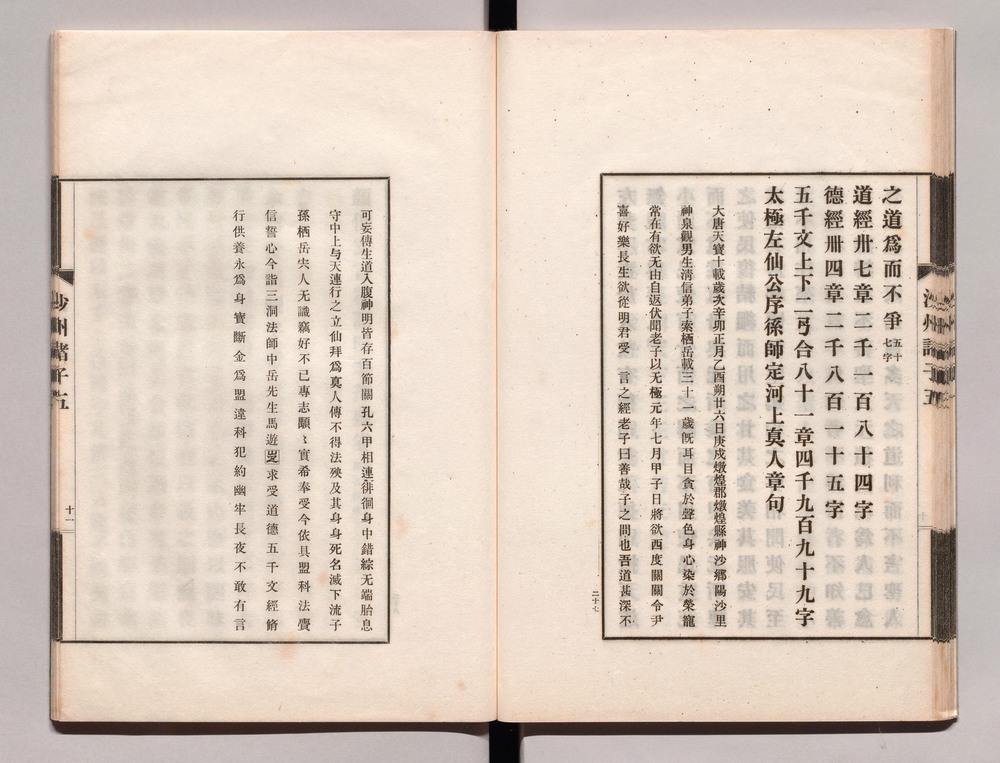 之道爲而不爭五十七字
道經卅七章二千一百八十四字
德經卌四章二千八百一十五字
五千文上下二弓合八十一章四千九百九十九字
太極左仙公序係師定河上眞人章句
大唐天寶十載歲次辛卯正月乙酉朔廿六日庚戌燉煌郡燉煌縣神沙鄉陽沙里
神泉觀男生淸信弟子索栖岳載三十一歲旣耳目貪於聲色身心染於榮寵
常在有欲无由自返伏聞老子以无極元年七月甲子日將欲西度關關令尹
喜好樂長生欲從明君受 一言之經老子曰善哉子之問也吾道甚深不
二十七
可妄傳生道入腹神明皆存百節關孔六甲相連徘徊身中錯綜无端胎息
守中上与天連行之立仙拜爲眞人傳不得法殃及其身身死名滅下流子
孫栖岳宍人无識竊好不已專志顒〻實希奉受今依具盟科法賷
信誓心今詣三洞法師中岳先生馬遊岌求受道德五千文經脩
行供養永爲身寶斷金爲盟違科犯約幽牢長夜不敢有言
沙州諸子五
十一